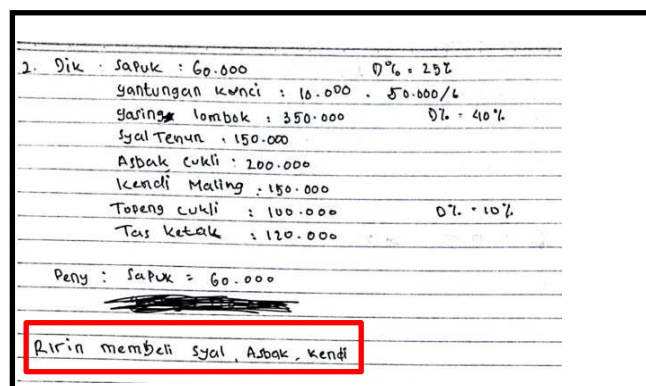 2. Dik : Sapuk : 60.000 D% = 25%
gantungan kunci : 10.000 . 50.000/6
gasing lombok : 350.000 D% = 40%
Syal Tenun : 150.000
Asbak cukli : 200.000
kendi Maling : 150.000
Topeng cukli : 100.000 D% = 10%
Tas ketak : 120.000
Peny : Sapuk = 60.000
Ririn membeli syal, Asbak, kendi